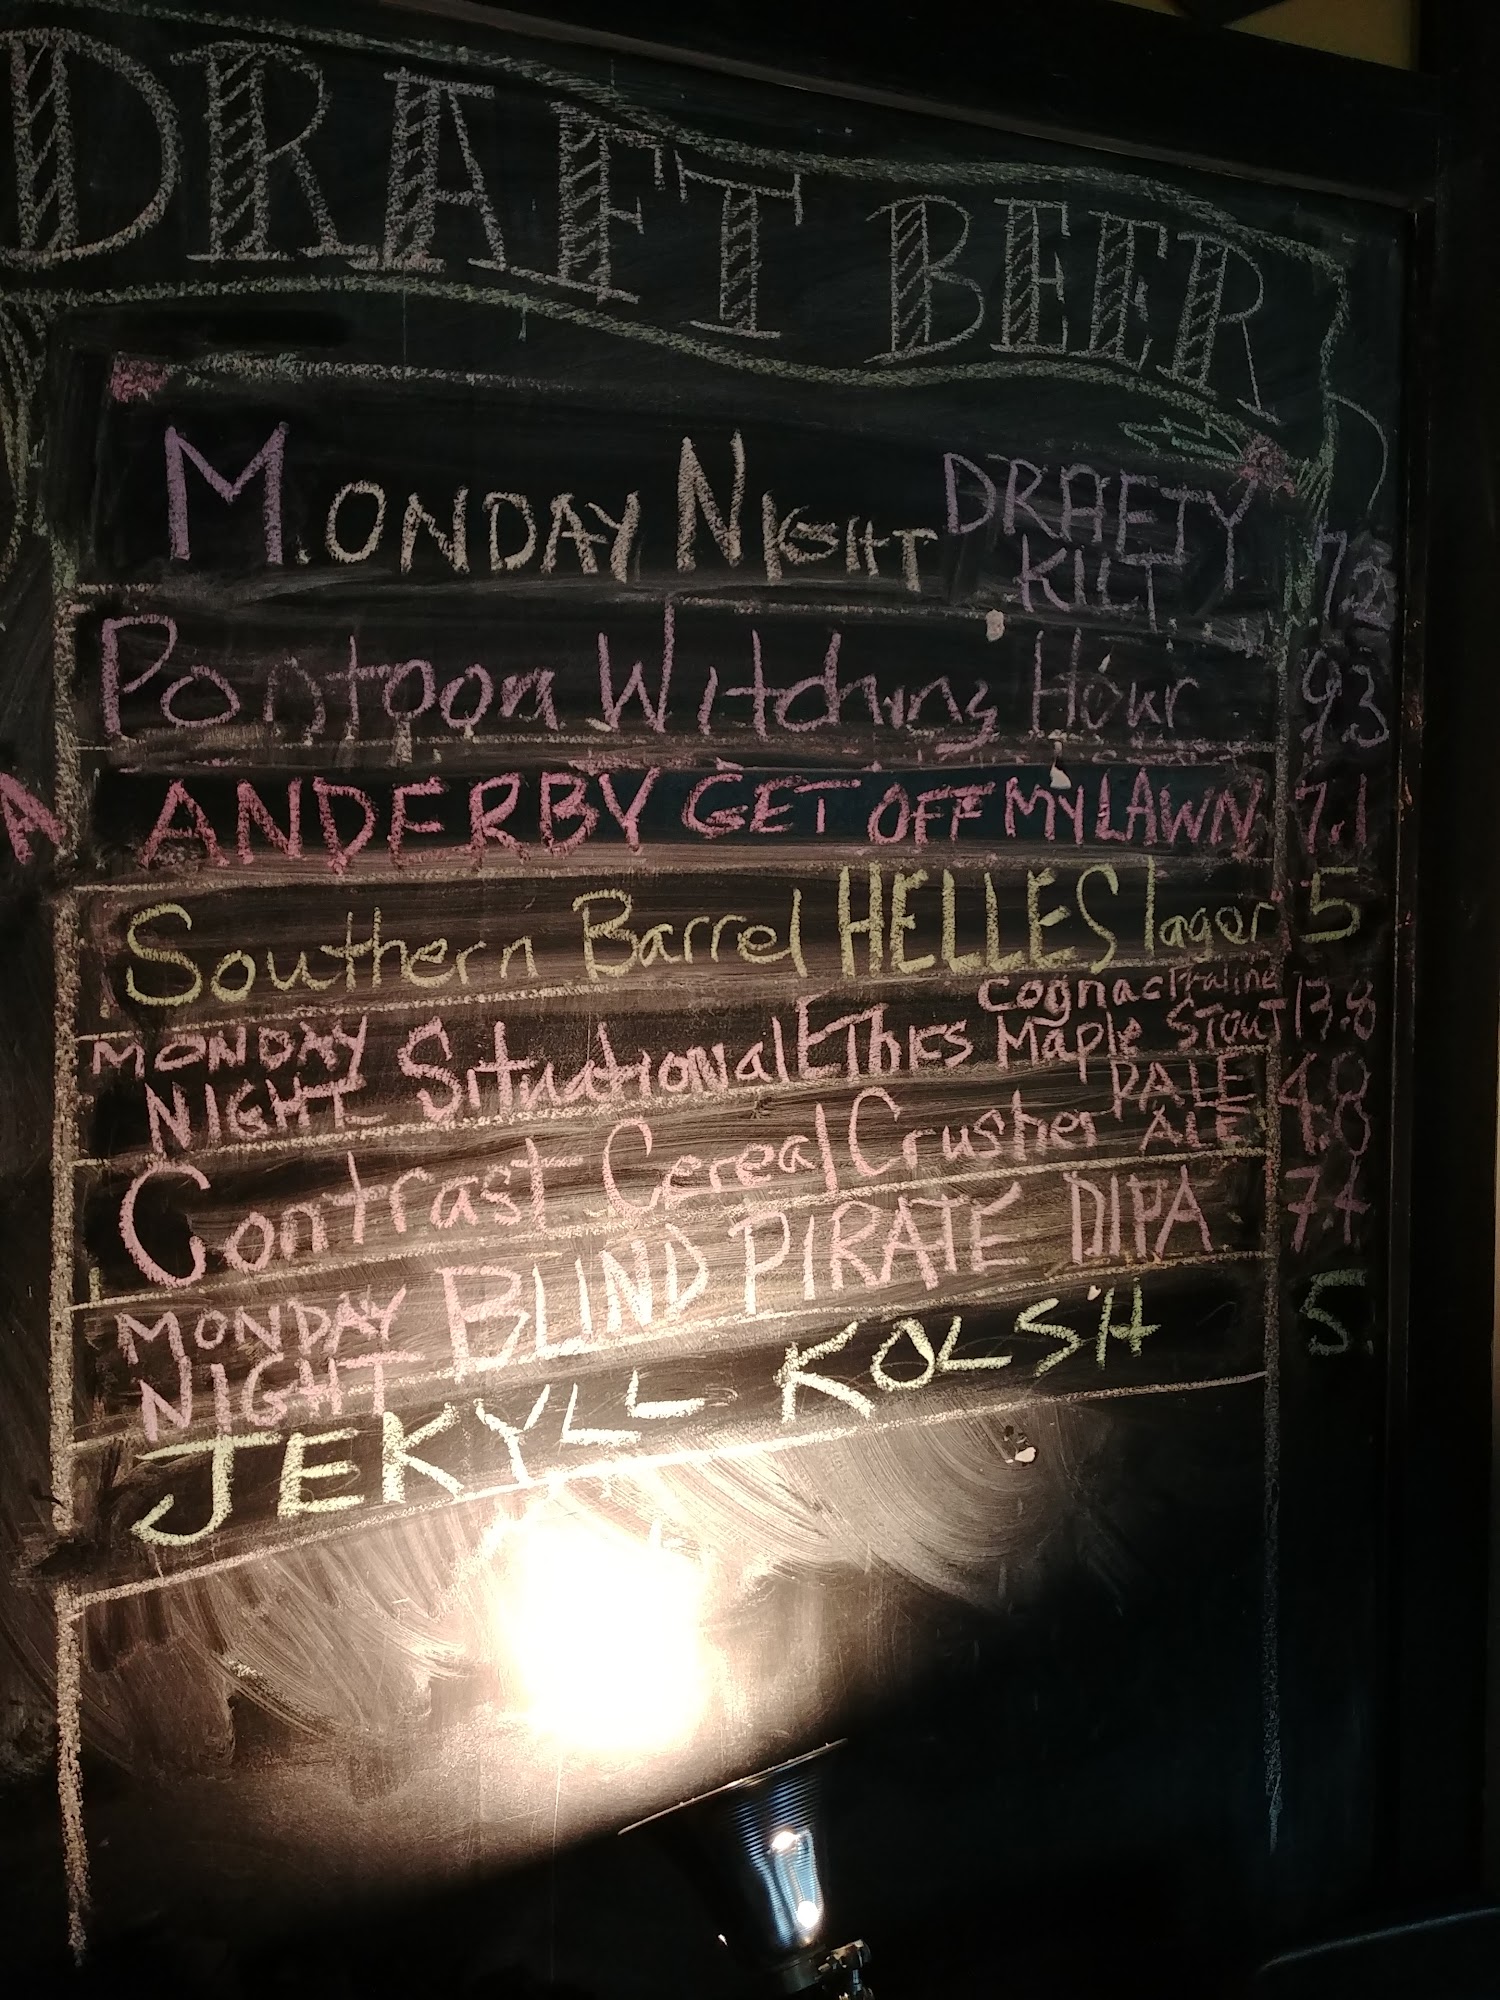 DRAFT BEER
MONDAY NIGHT DRAFTY KILT 7.2
Pontoon Witching Hour 9.3
ANDERBY GET OFF MY LAWN 7.1
Southern Barrel HELLES lager 5
MONDAY NIGHT Situational Ethics Cognac Praline Maple Stout 13.8
Contrast Cereal Crusher PALE ALE 4.8
MONDAY NIGHT BLIND PIRATE DIPA 7.4
JEKYLL KOLSH 5.